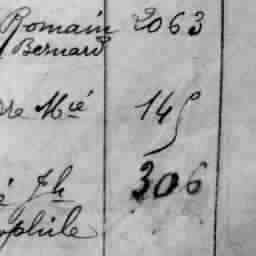 Romain 2063
Bernard
re Mié 145
é Jh 306
ophile